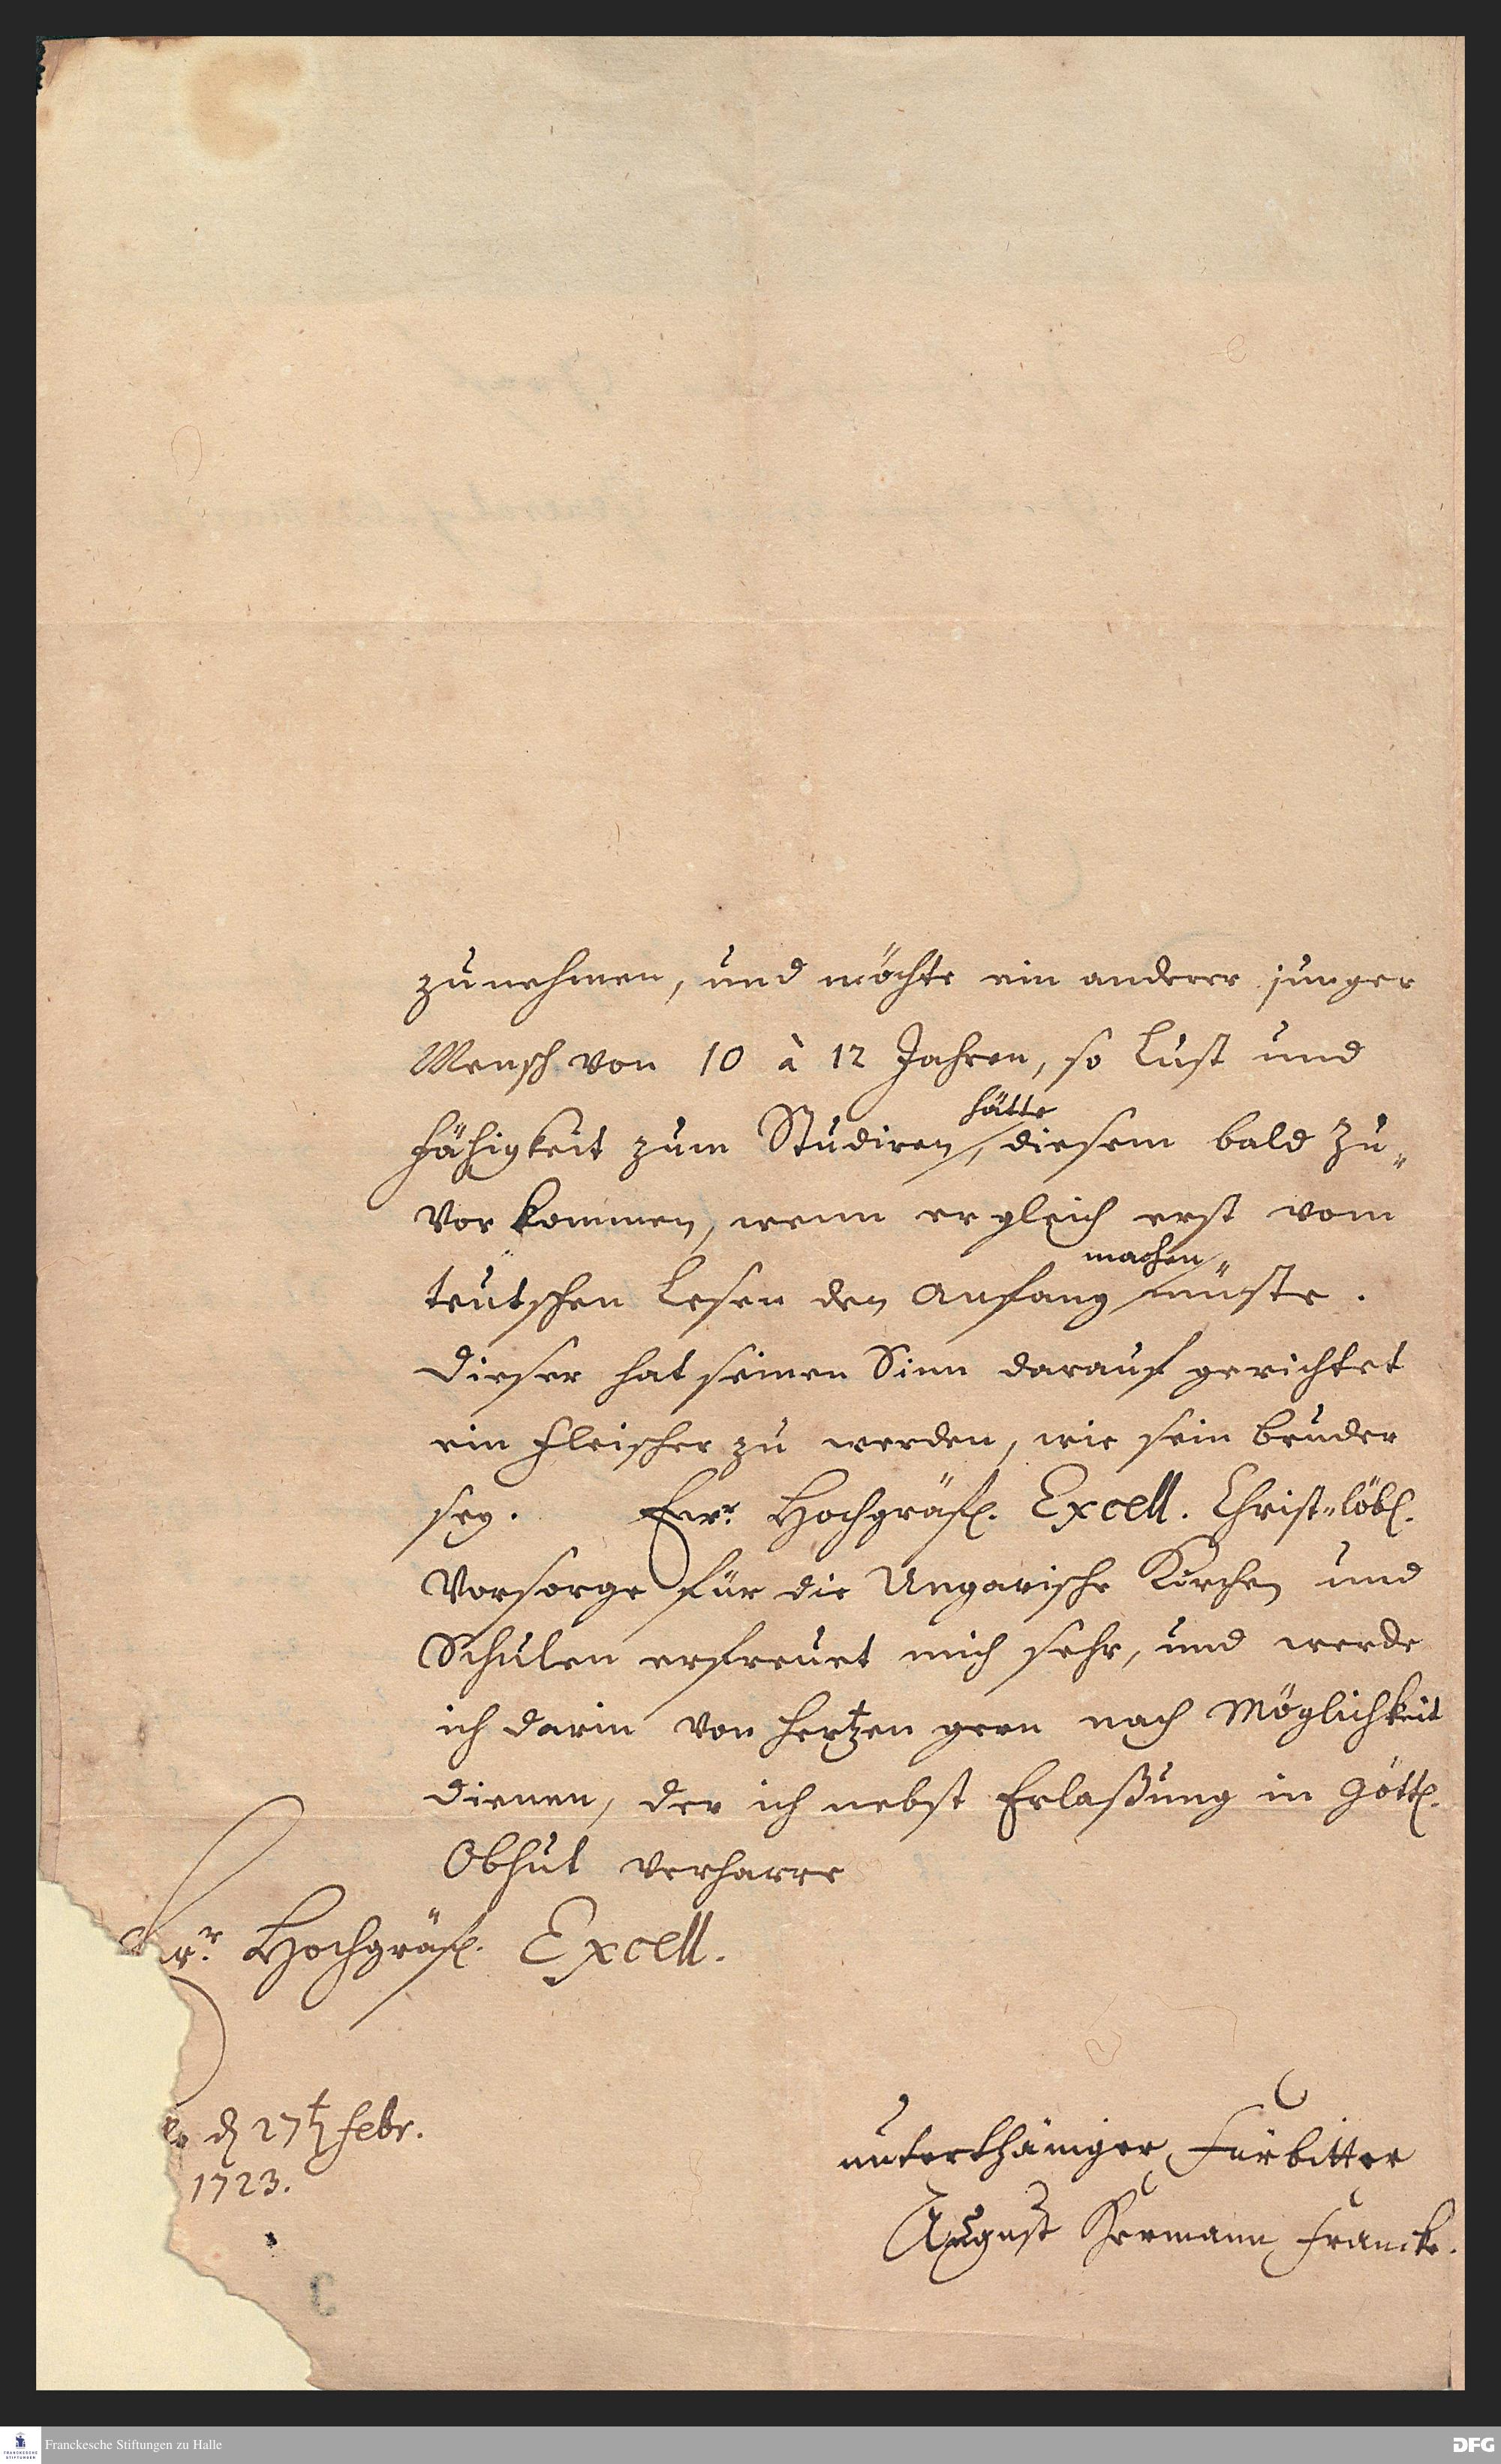 zunehmen, und möchte ein anderer junger
Mensch von 10 à 12 Jahren, so Lust und
hätte
Fähigkeit zum Studiren, diesem bald zu„
vor kommen, wenn er gleich erst vom
machen
teutschen Lesen den Anfang müste.
Dieser hat seinen Sinn darauf gerichtet
ein Fleischer zu werden, wie sein Bruder
sey. Ewr. Hochgräfl. Excell. Christ-löbl.
Vorsorge für die Ungarische Kirchen und
Schulen erfreuet mich sehr, und werde
ich darin von Hertzen gern nach Möglichkeit
dienen, der ich nebst Erlaßung in Göttl.
Obhut verharre
Ewr. Hochgräfl. Excell.
d 27t Febr.
1723.
unterthäniger Fürbitter
August Hermann Francke.
Franckesche Stiftungen zu Halle
FRANCKESCHE STIFTUNGEN
DFG